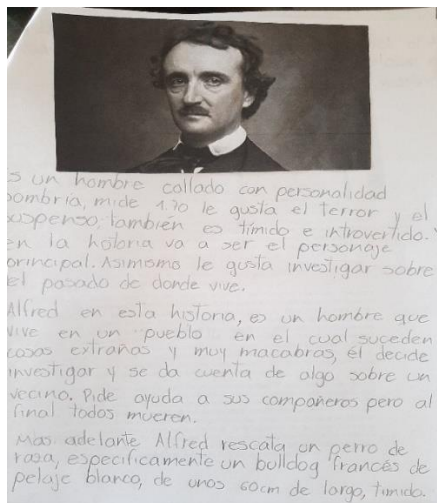 Es un hombre callado con personalidad
sombría, mide 1.70 le gusta el terror y el
suspenso, también es tímido e introvertido. Y
en la historia va a ser el personaje
principal. Asimismo le gusta investigar sobre
el pasado de donde vive.
Alfred en esta historia, es un hombre que
vive en un pueblo en el cual suceden
cosas extrañas y muy macabras, él decide
investigar y se da cuenta de algo sobre un
vecino. Pide ayuda a sus compañeros pero al
final todos mueren.
Mas adelante Alfred rescata un perro de
raza, especificamente un bulldog francés de
pelaje blanco, de unos 60cm de largo, timido.